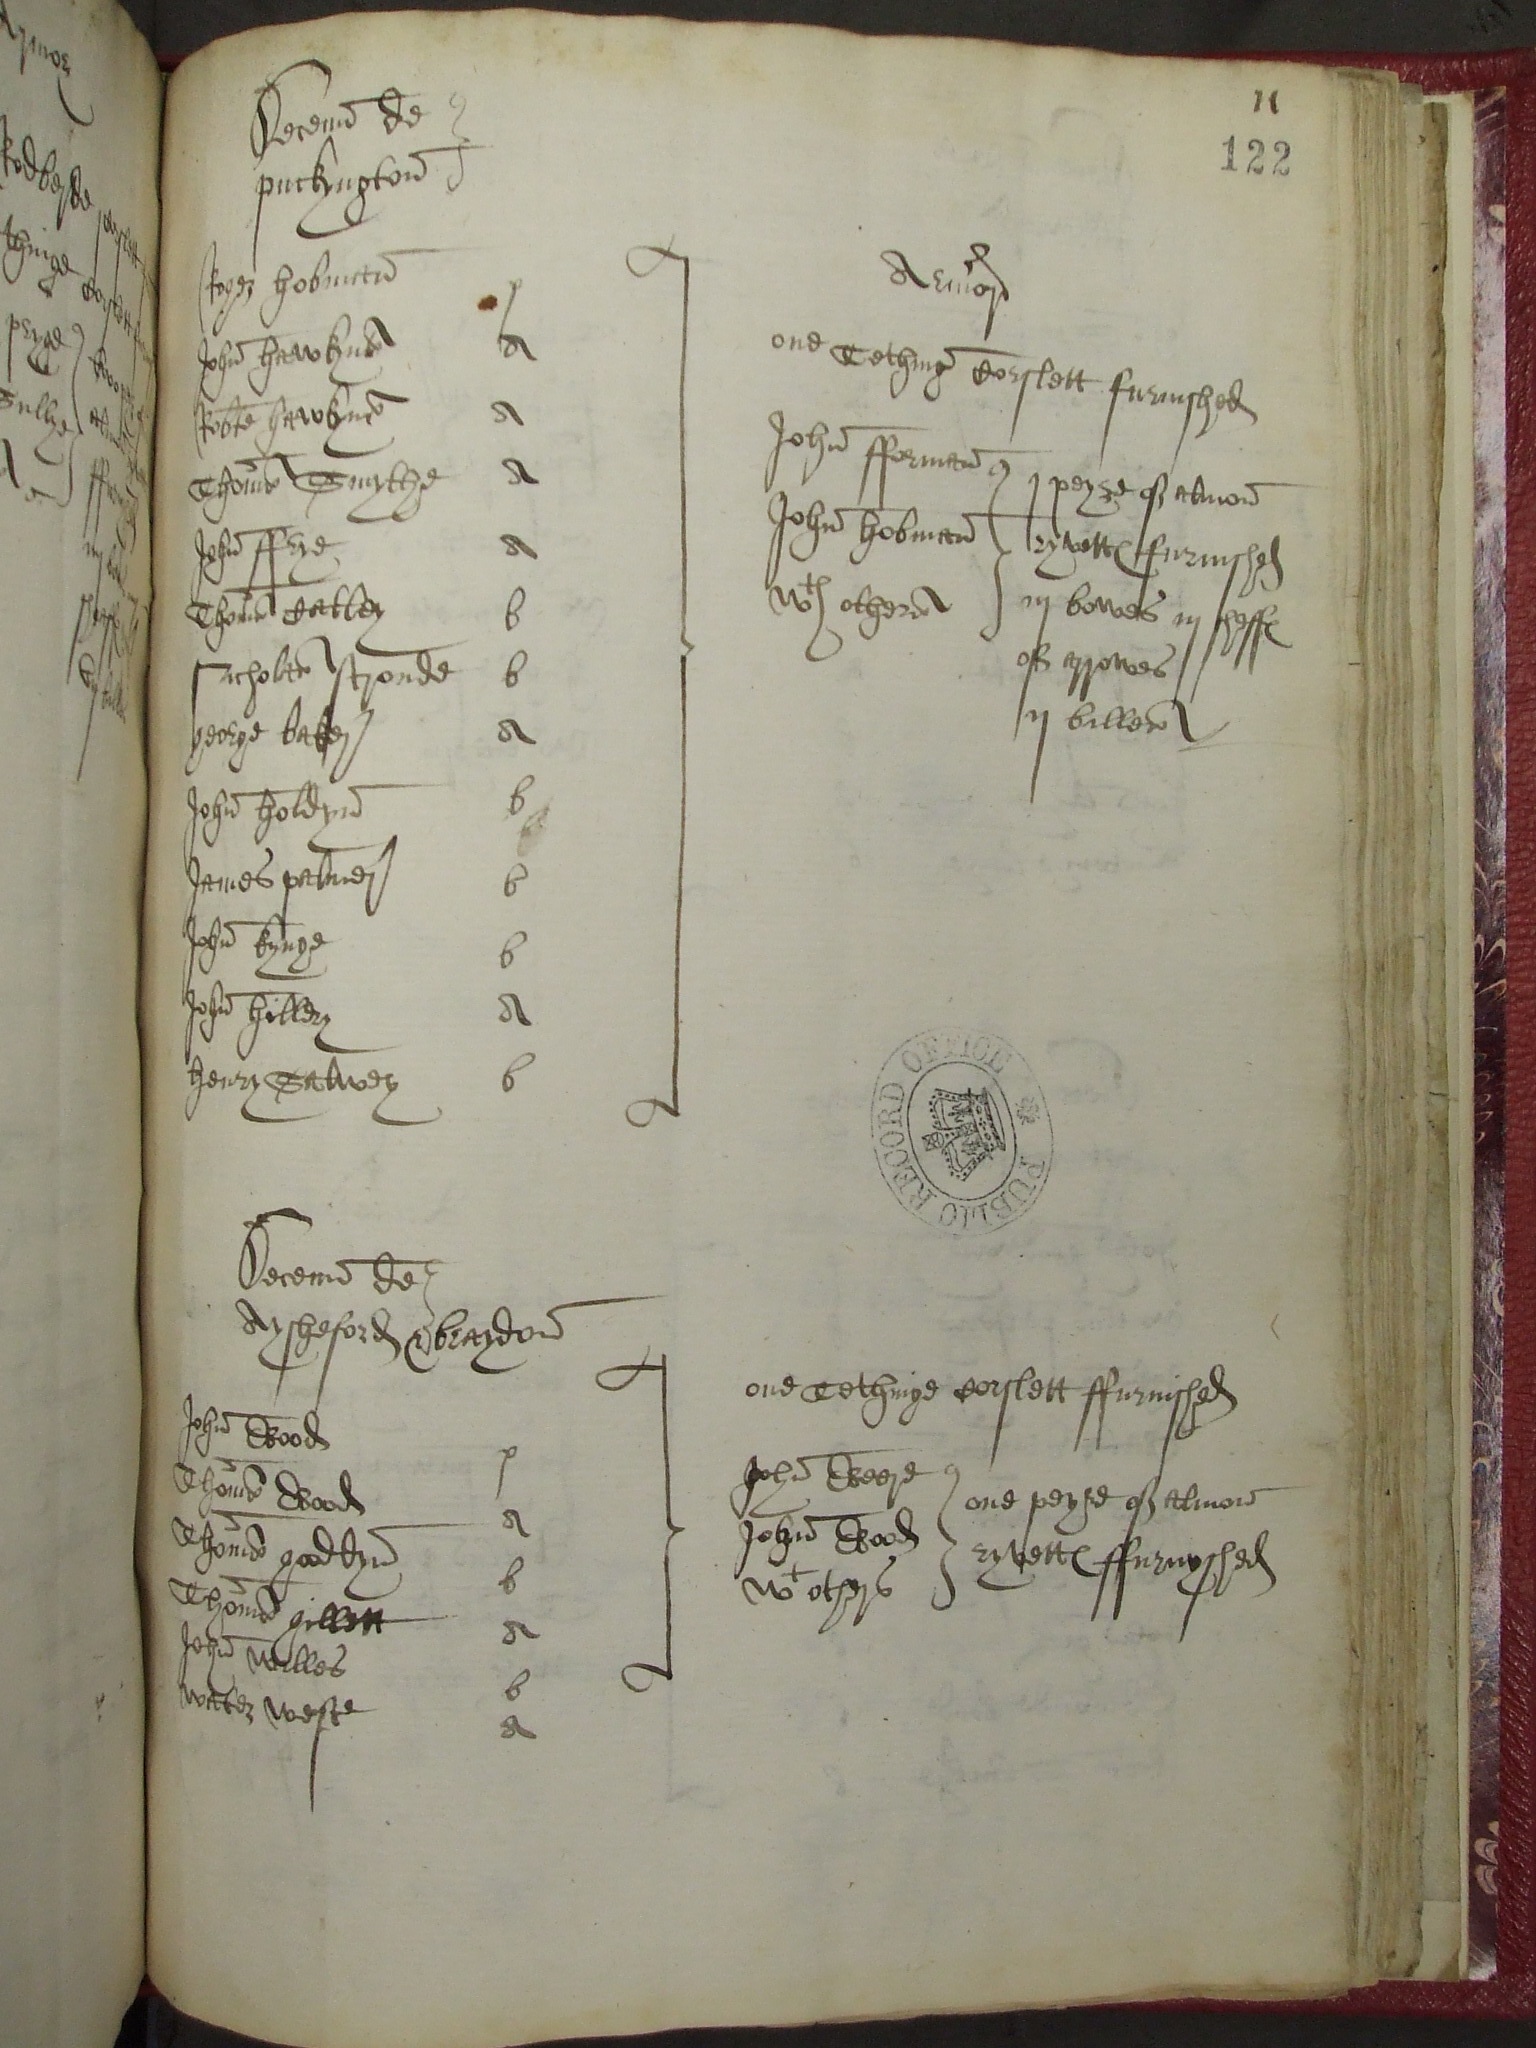 11
122
Decenn de
puckyngton
Roger hobman p
John hawkyns a
Robte hawkyns a
Thomas Smythe a
John ffrye a
Thomas Catley b
Nicholas stronde b
george baker a
John holdyn b
James palmer b
John kynge b
John hillery a
henry Salwey b
Armor
one Tething Corslett furnished
John fforman
John hobman
wth others
j peyre of almon
ryvettes furnished
iij bowes iij sheffes
of arrowes
ij billes
PUBLIC RECORD OFFICE
Decenn de
Aysheford & braydon
John Wood p
Thomas Wood a
Thomas gooddyn b
Thomas gillett a
John Willes b
Water Weste a
one Tethinge Corslett ffurnished
John Weere
John Wood
wt others
one peyre of almon
ryvettes ffurnyshed